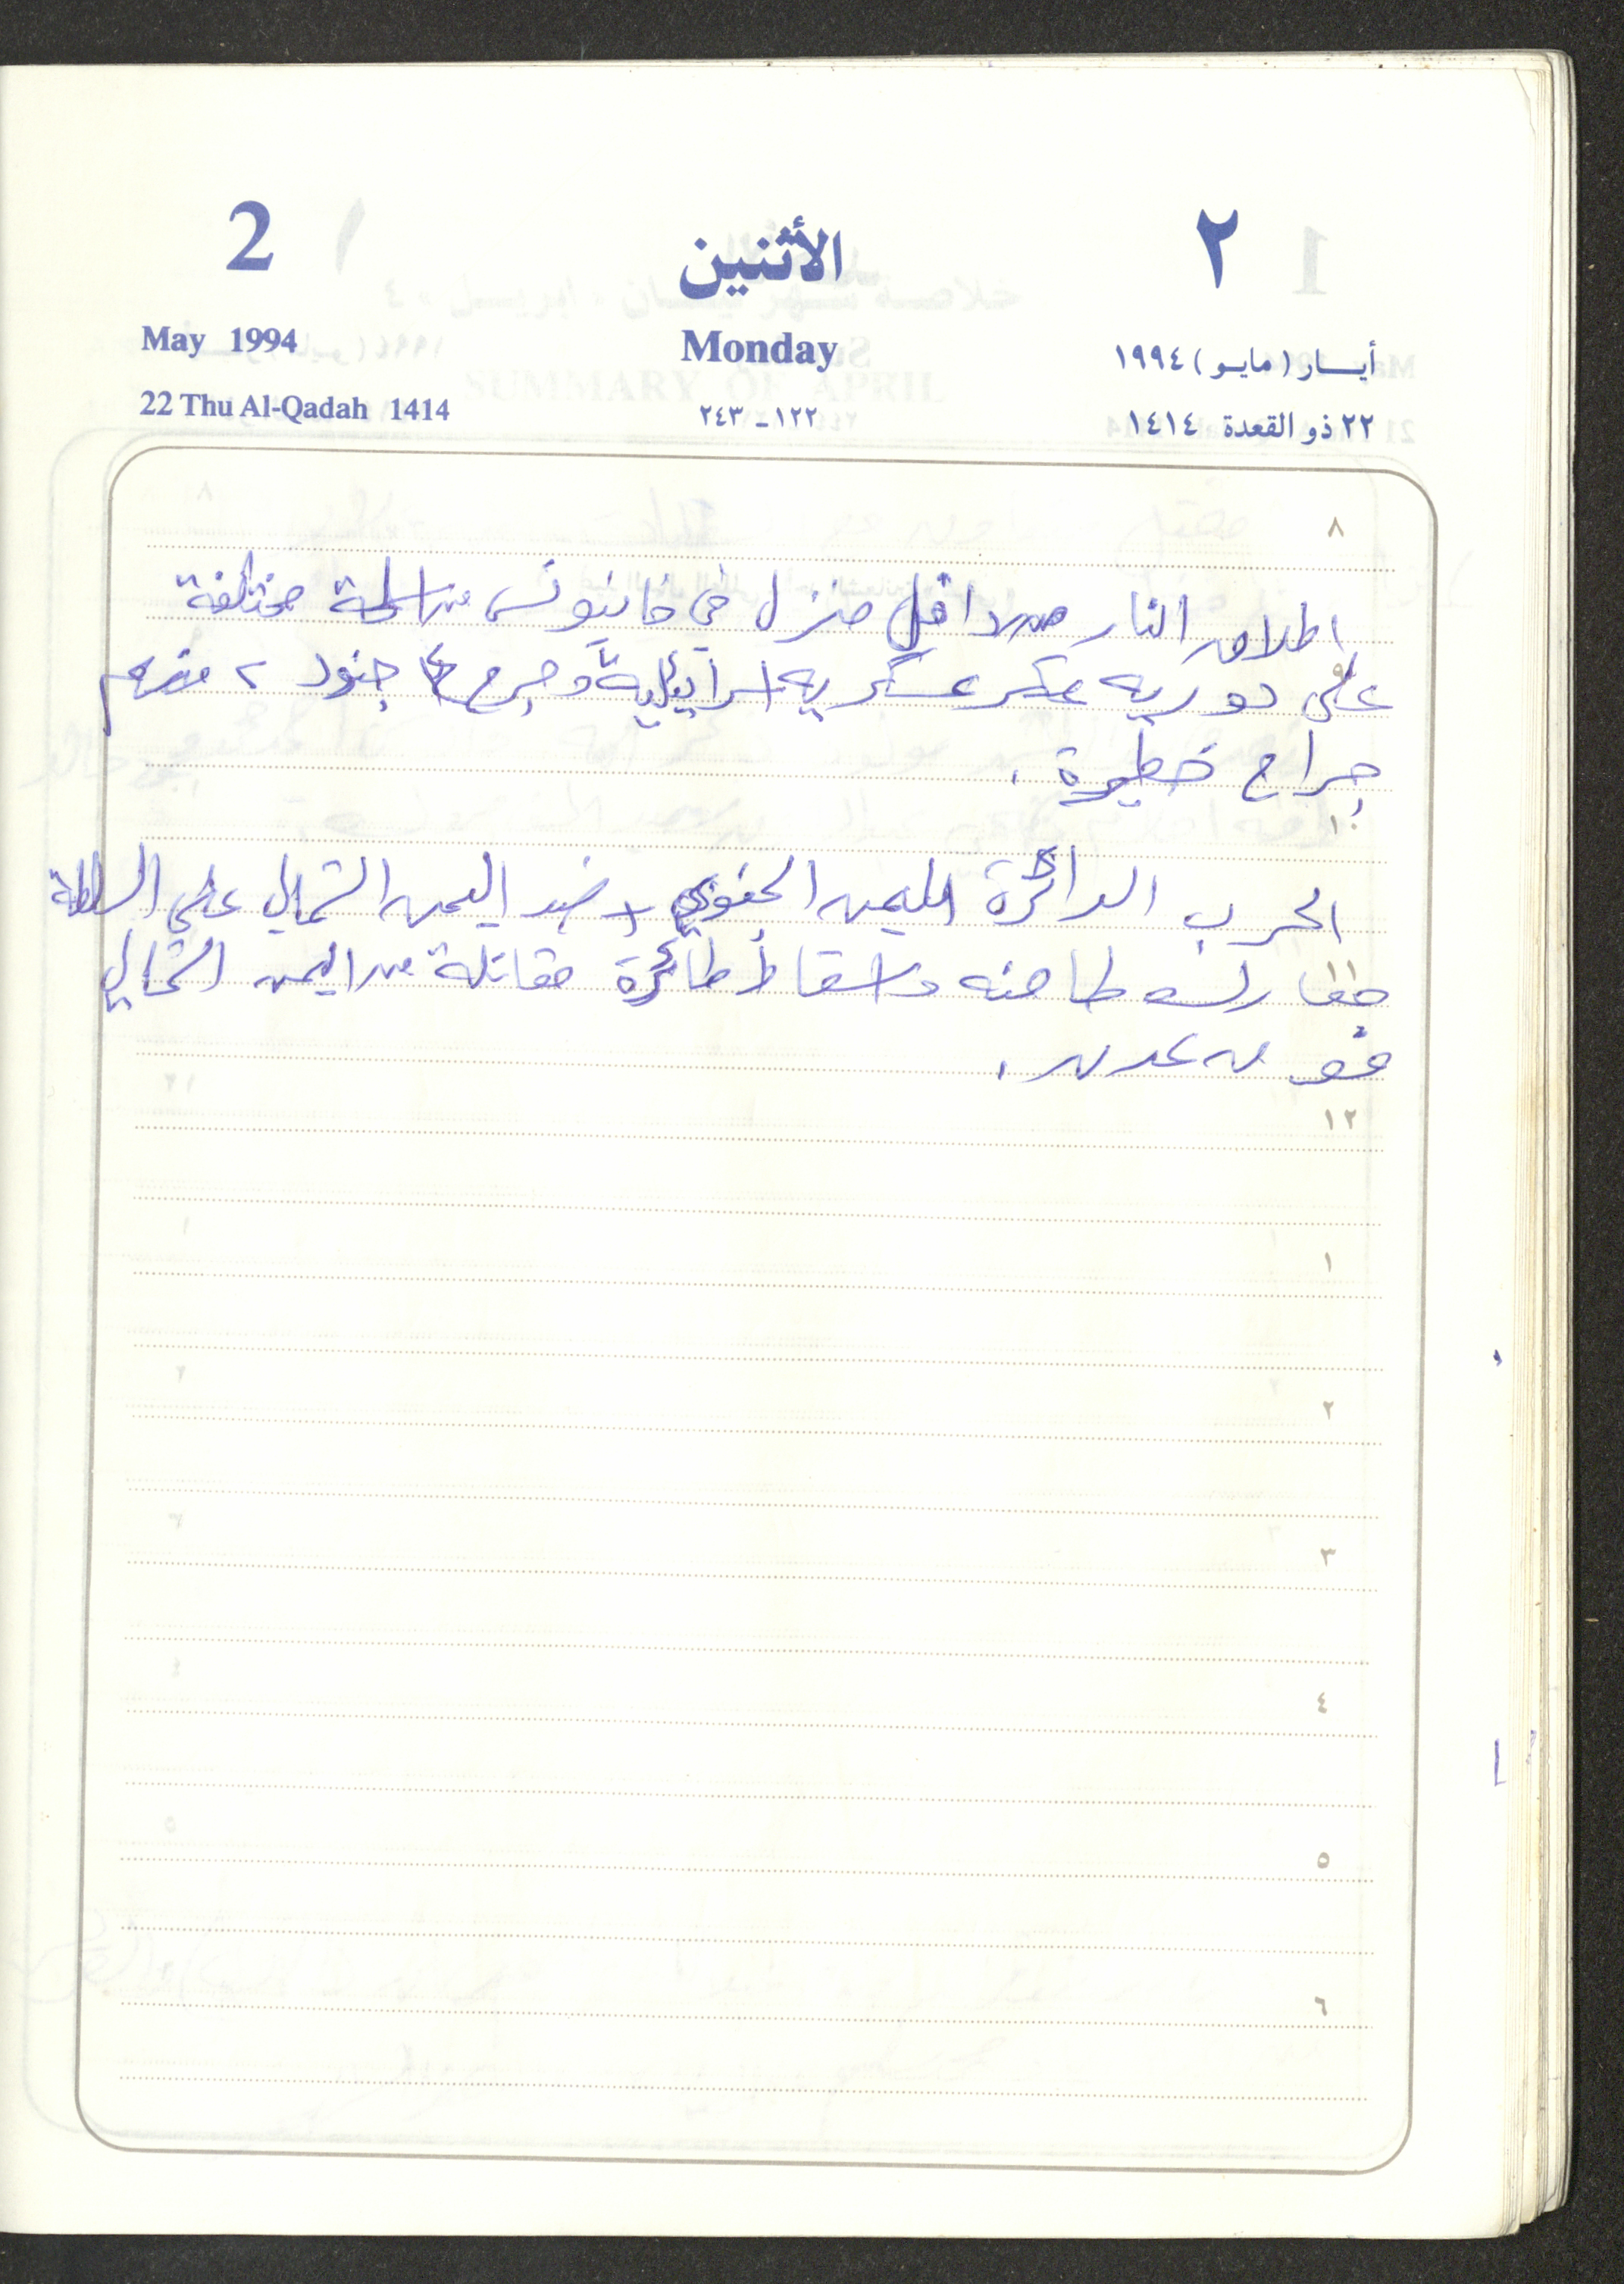 2 الأثنين ٢
May 1994 Monday أيـــار (مايـو) ١٩٩٤
22 Thu Al-Qadah 1414 ١٢٢ - ٢٤٣ ٢٢ ذو القعدة ١٤١٤
٨
اطلاق النار من داخل منزل في خانيونس من اسلحة مختلفة
٩
على دورية عسكر عسكرية اسرائيلية وجرح ٤ جنود ٢ منهم
جراح خطيرة .
١٠
الحرب الدائرة اليمن الجنوبي ضد اليمن الشمالي على السلطة
١١
معارك طاحنه واسقاط طائرة مقاتلة من اليمن الشمالي
فوق عدن .
١٢
١
٢
٣
٤
٥
٦